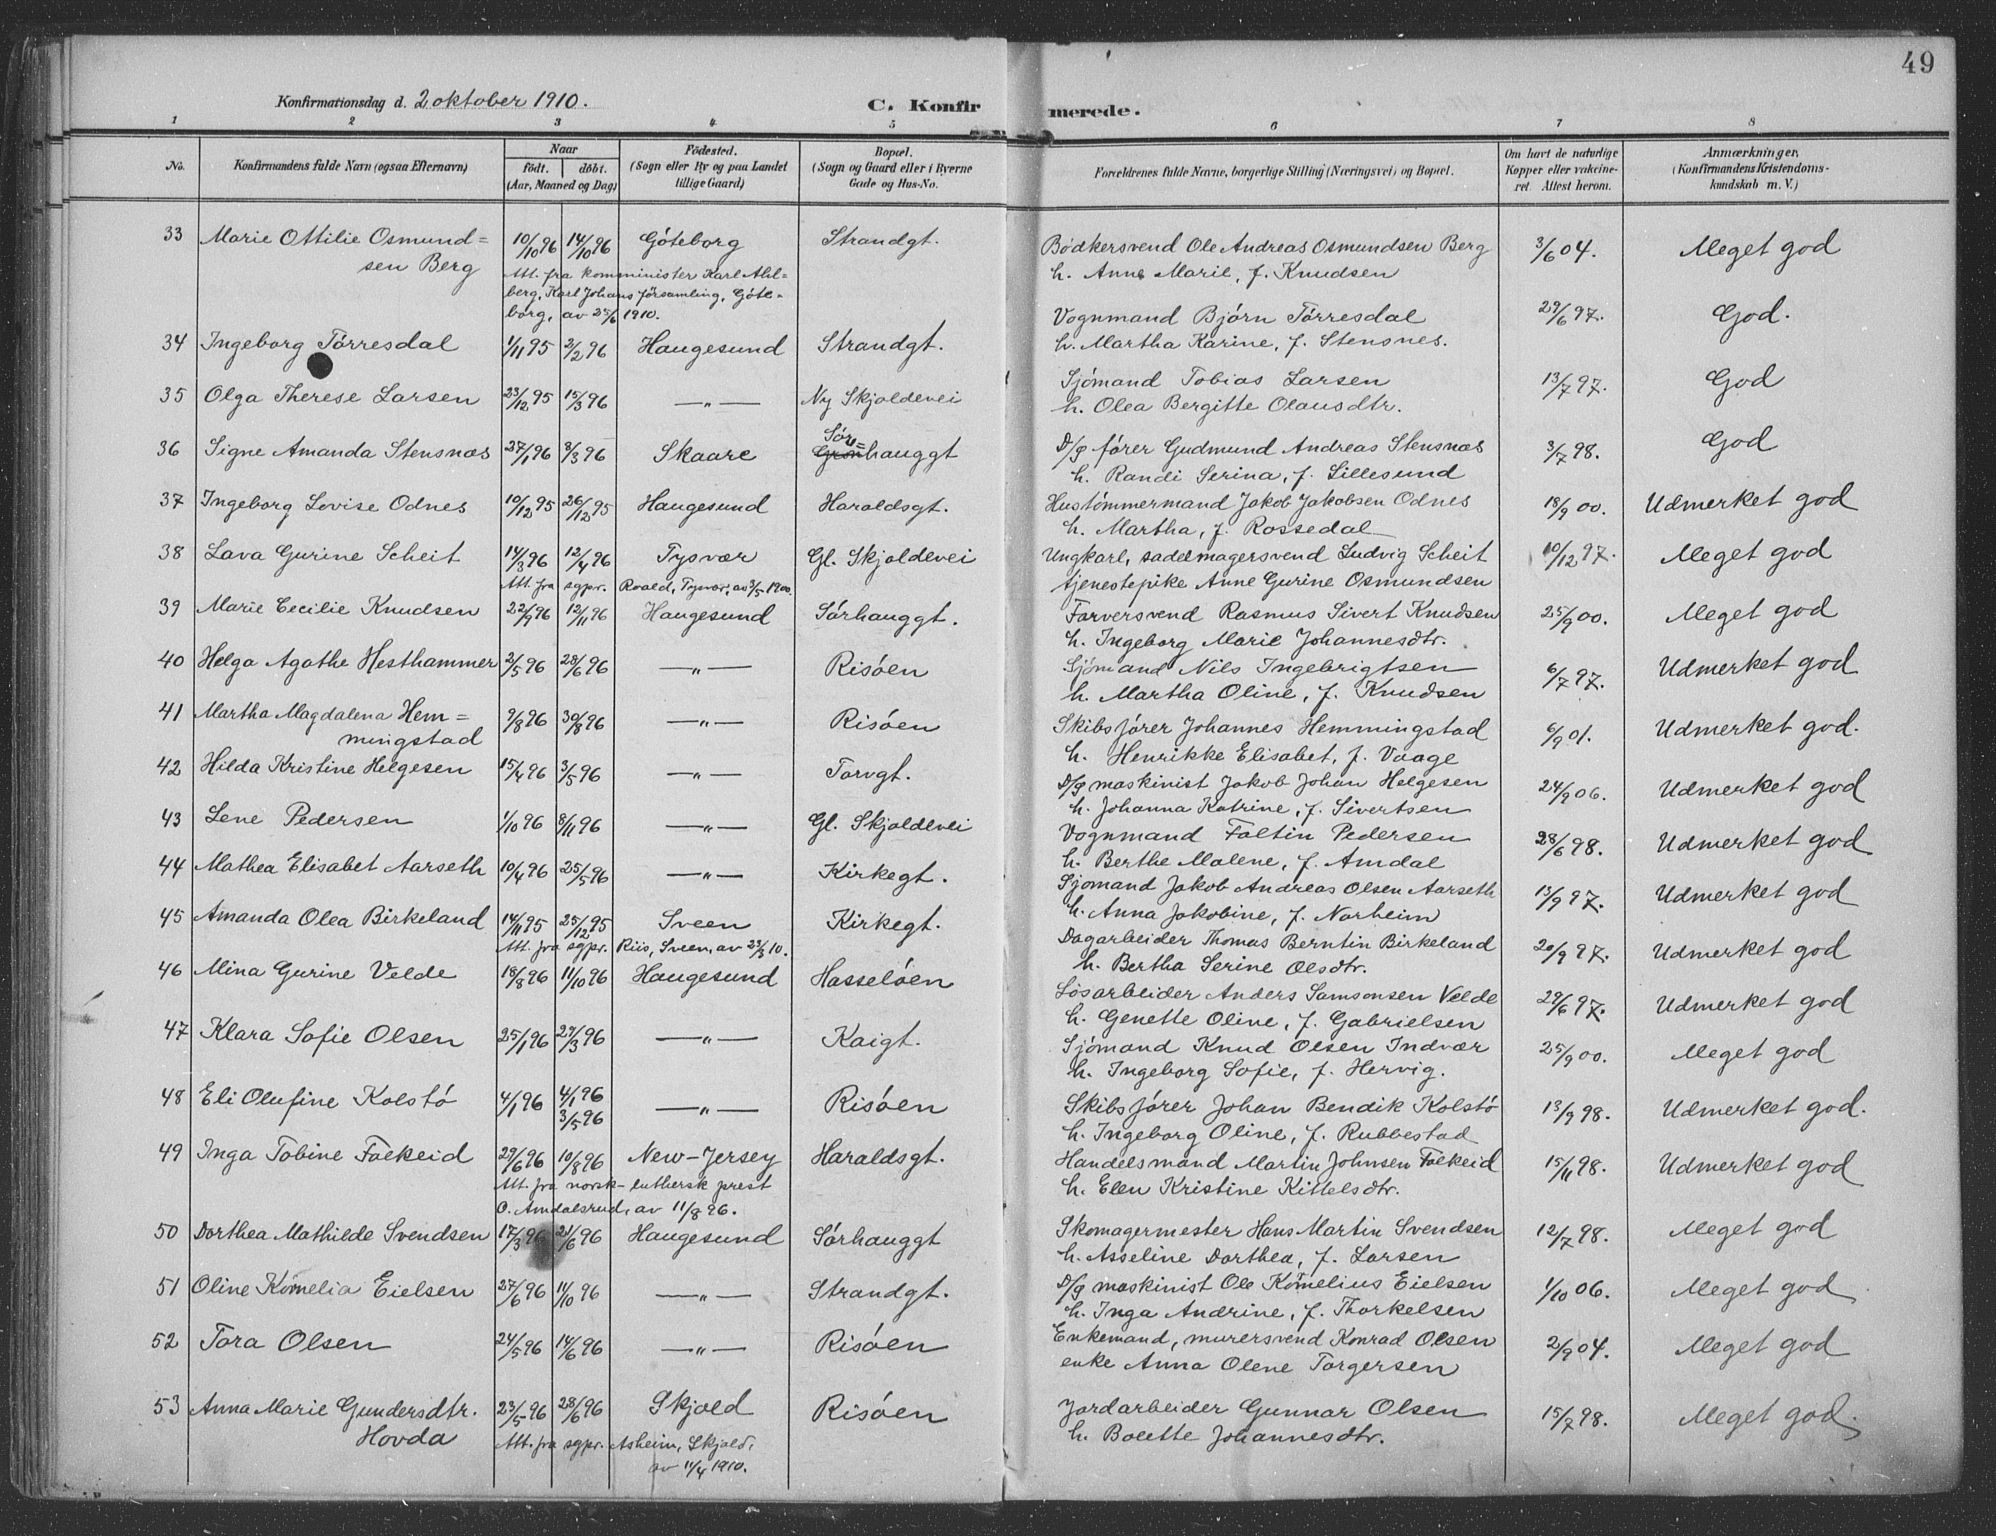 49
Konfirmationsdag d. 2 oktober 1910. C. Konfirmerede.
1 2 3 4 5 6 7 8
No. Konfirmandens fulde Navn (ogsaa Efternavn) Naar födt. döbt. (Aar, Maaned og Dag) Födested. (Sogn eller By og paa Landet tillige Gaard) Bopæl. (Sogn og Gaard eller i Byerne Gade og Hus-No. Forældrenes fulde Navne, borgerlige Stilling (Næringsvei) og Bopæl. Om havt de naturlige Kopper eller vakcineret Attest herom. Anmærkninger, (Konfirmandens Kristendomskundskab m. V.)
33 Marie Ottilie Osmund= 10/10 96 14/10 96 Göteborg Strandgt. Bödkersvend Ole Andreas Osmundsen Berg 3/6 04. Meget god
sen Berg Att. fra komminister Karl Ahl= h. Anne Marie, f. Knudsen
berg, Karl Johans församling, Göte=
borg, av 25/6 1910.
34 Ingeborg Törresdal 1/11 95 2/2 96 Haugesund Strandgt. Vognmand Björn Törresdal 29/6 97. God.
h. Martha Karine, f. Stensnes.
35 Olga Therese Larsen 23/12 95 15/3 96 —"— Ny Skjoldevei Sjömand Tobias Larsen 13/7 97. God
h. Olea Bergitte Olausdtr.
36 Signe Amanda Stensnæs 27/1 96 8/3 96 Skaare Sör=hauggt D/g fører Gudmund Andreas Stensnæs 3/7 98. God
h. Randi Serina, f. Lillesund
37 Ingeborg Lovise Odnes 10/12 95 26/12 95 Haugesund Haraldsgt. Hustömmermand Jakob Jakobsen Odnes 18/9 00. Udmerket god
h. Martha, f. Rossedal
38 Lava Gurine Scheit 14/3 96 12/4 96 Tysvær Gl. Skjoldevei Ungkarl, sadelmagersvend Ludvig Scheit 10/12 97. Meget god
Att. fra sgpr. Roald, Tysvær, av 3/5 1900. tjenestepike Anne Gurine Osmundsen
39 Marie Cecilie Knudsen 22/9 96 12/11 96 Haugesund Sörhauggt. Farversvend Rasmus Sivert Knudsen 25/9 00. Meget god
h. Ingeborg Marie Johannesdtr.
40 Helga Agathe Hesthammer 2/5 96 28/6 96 —"— Risöen Sjömand Nils Ingebrigtsen 6/7 97. Udmerket god
h. Martha Oline, f. Knudsen
41 Martha Magdalena Hem= 9/8 96 30/8 96 —"— Risöen Skibsförer Johannes Hemmingstad 6/9 01. Udmerket god.
mingstad h. Henrikke Elisabet, f. Vaage
42 Hilda Kristine Helgesen 15/4 96 3/5 96 —"— Torvgt. D/g maskinist Jakob Johan Helgesen 24/9 06. Udmerket god
h. Johanna Katrine, f. Sivertsen
43 Lene Pedersen 1/10 96 8/11 96 —"— Gl. Skjoldevei Vognmand Faltin Pedersen 28/6 98. Udmerket god
h. Berthe Malene, f. Amdal
44 Mathea Elisabet Aarseth 10/4 96 25/5 96 —"— Kirkegt. Sjömand Jakob Andreas Olsen Aarseth 13/9 97. Udmerket god
h. Anna Jakobine, f. Norheim
45 Amanda Olea Birkeland 14/11 95 25/12 95 Sveen Kirkegt. Dagarbeider Thomas Berntin Birkeland 20/9 97. Udmerket god
Att. fra sgpr. Riis, Sveen, av 23/3 10. h. Bertha Serine Olsdtr.
46 Mina Gurine Velde 18/8 96 11/10 96 Haugesund Hasselöen Lösarbeider Anders Samsonsen Velde 29/6 97. Udmerket god
h. Genette Oline, f. Gabrielsen
47 Klara Sofie Olsen 25/1 96 29/3 96 —"— Kaigt. Sjömand Knud Olsen Indvær 25/9 00. Meget god
h. Ingeborg Sofie, f. Hervig.
48 Eli Olufine Kolstö 4/1 96 4/1 96 —"— Risöen Skibsförer Johan Bendik Kolstö 13/9 98. Udmerket god.
3/5 96 h. Ingeborg Oline, f. Rubbestad
49 Inga Tobine Falkeid 29/6 96 10/8 96 New-Jersey Haraldsgt. Handelsmand Martin Johnsen Falkeid 15/11 98. Udmerket god
Att. fra norsk-luthersk prest h. Elen Kristine Kittelsdtr.
O. Amdalsrud, av 11/8 96.
50 Dorthea Mathilde Svendsen 17/3 96 21/6 96 Haugesund Sörhauggt Skomagermester Hans Martin Svendsen 12/7 98. Meget god
h. Asseline Dorthea, f. Larsen
51 Oline Körnelia Eielsen 27/6 96 11/10 96 —"— Strandgt. D/g maskinist Ole Körnelius Eielsen 1/10 06. Meget god
h. Inga Andrine, f. Thorkelsen
52 Tora Olsen 24/5 96 14/6 96 —"— Risöen Enkemand, murersvend Konrad Olsen 2/9 04. Meget god
enke Anna Olene Torgersen
53 Anna Marie Gundersdtr. 23/5 96 28/6 96 Skjold Risöen Jordarbeider Gunnar Olsen 15/7 98. Meget god.
Hovda Att. fra sgpr. Asheim, Skjold, h. Bolette Johannesdtr.
av 11/4 1910.